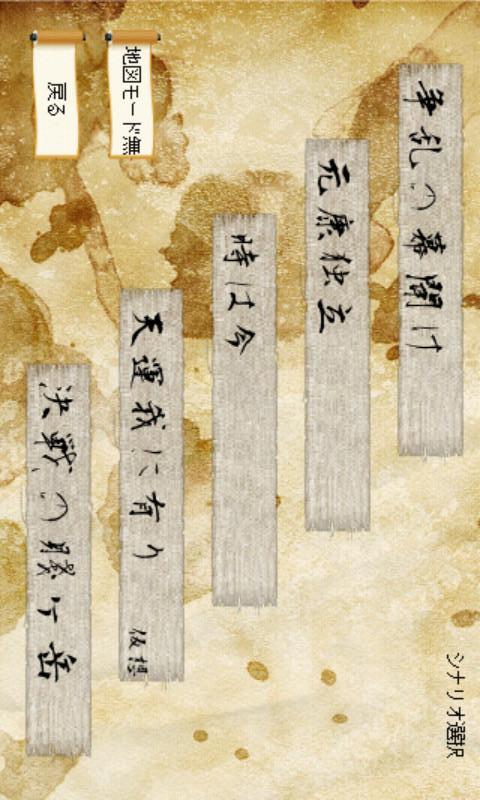 シナリオ選択
争乱の幕開け
元康独立
時は今
天運我に有り 仮想
決戦の賤ヶ岳
地図モード無
戻る